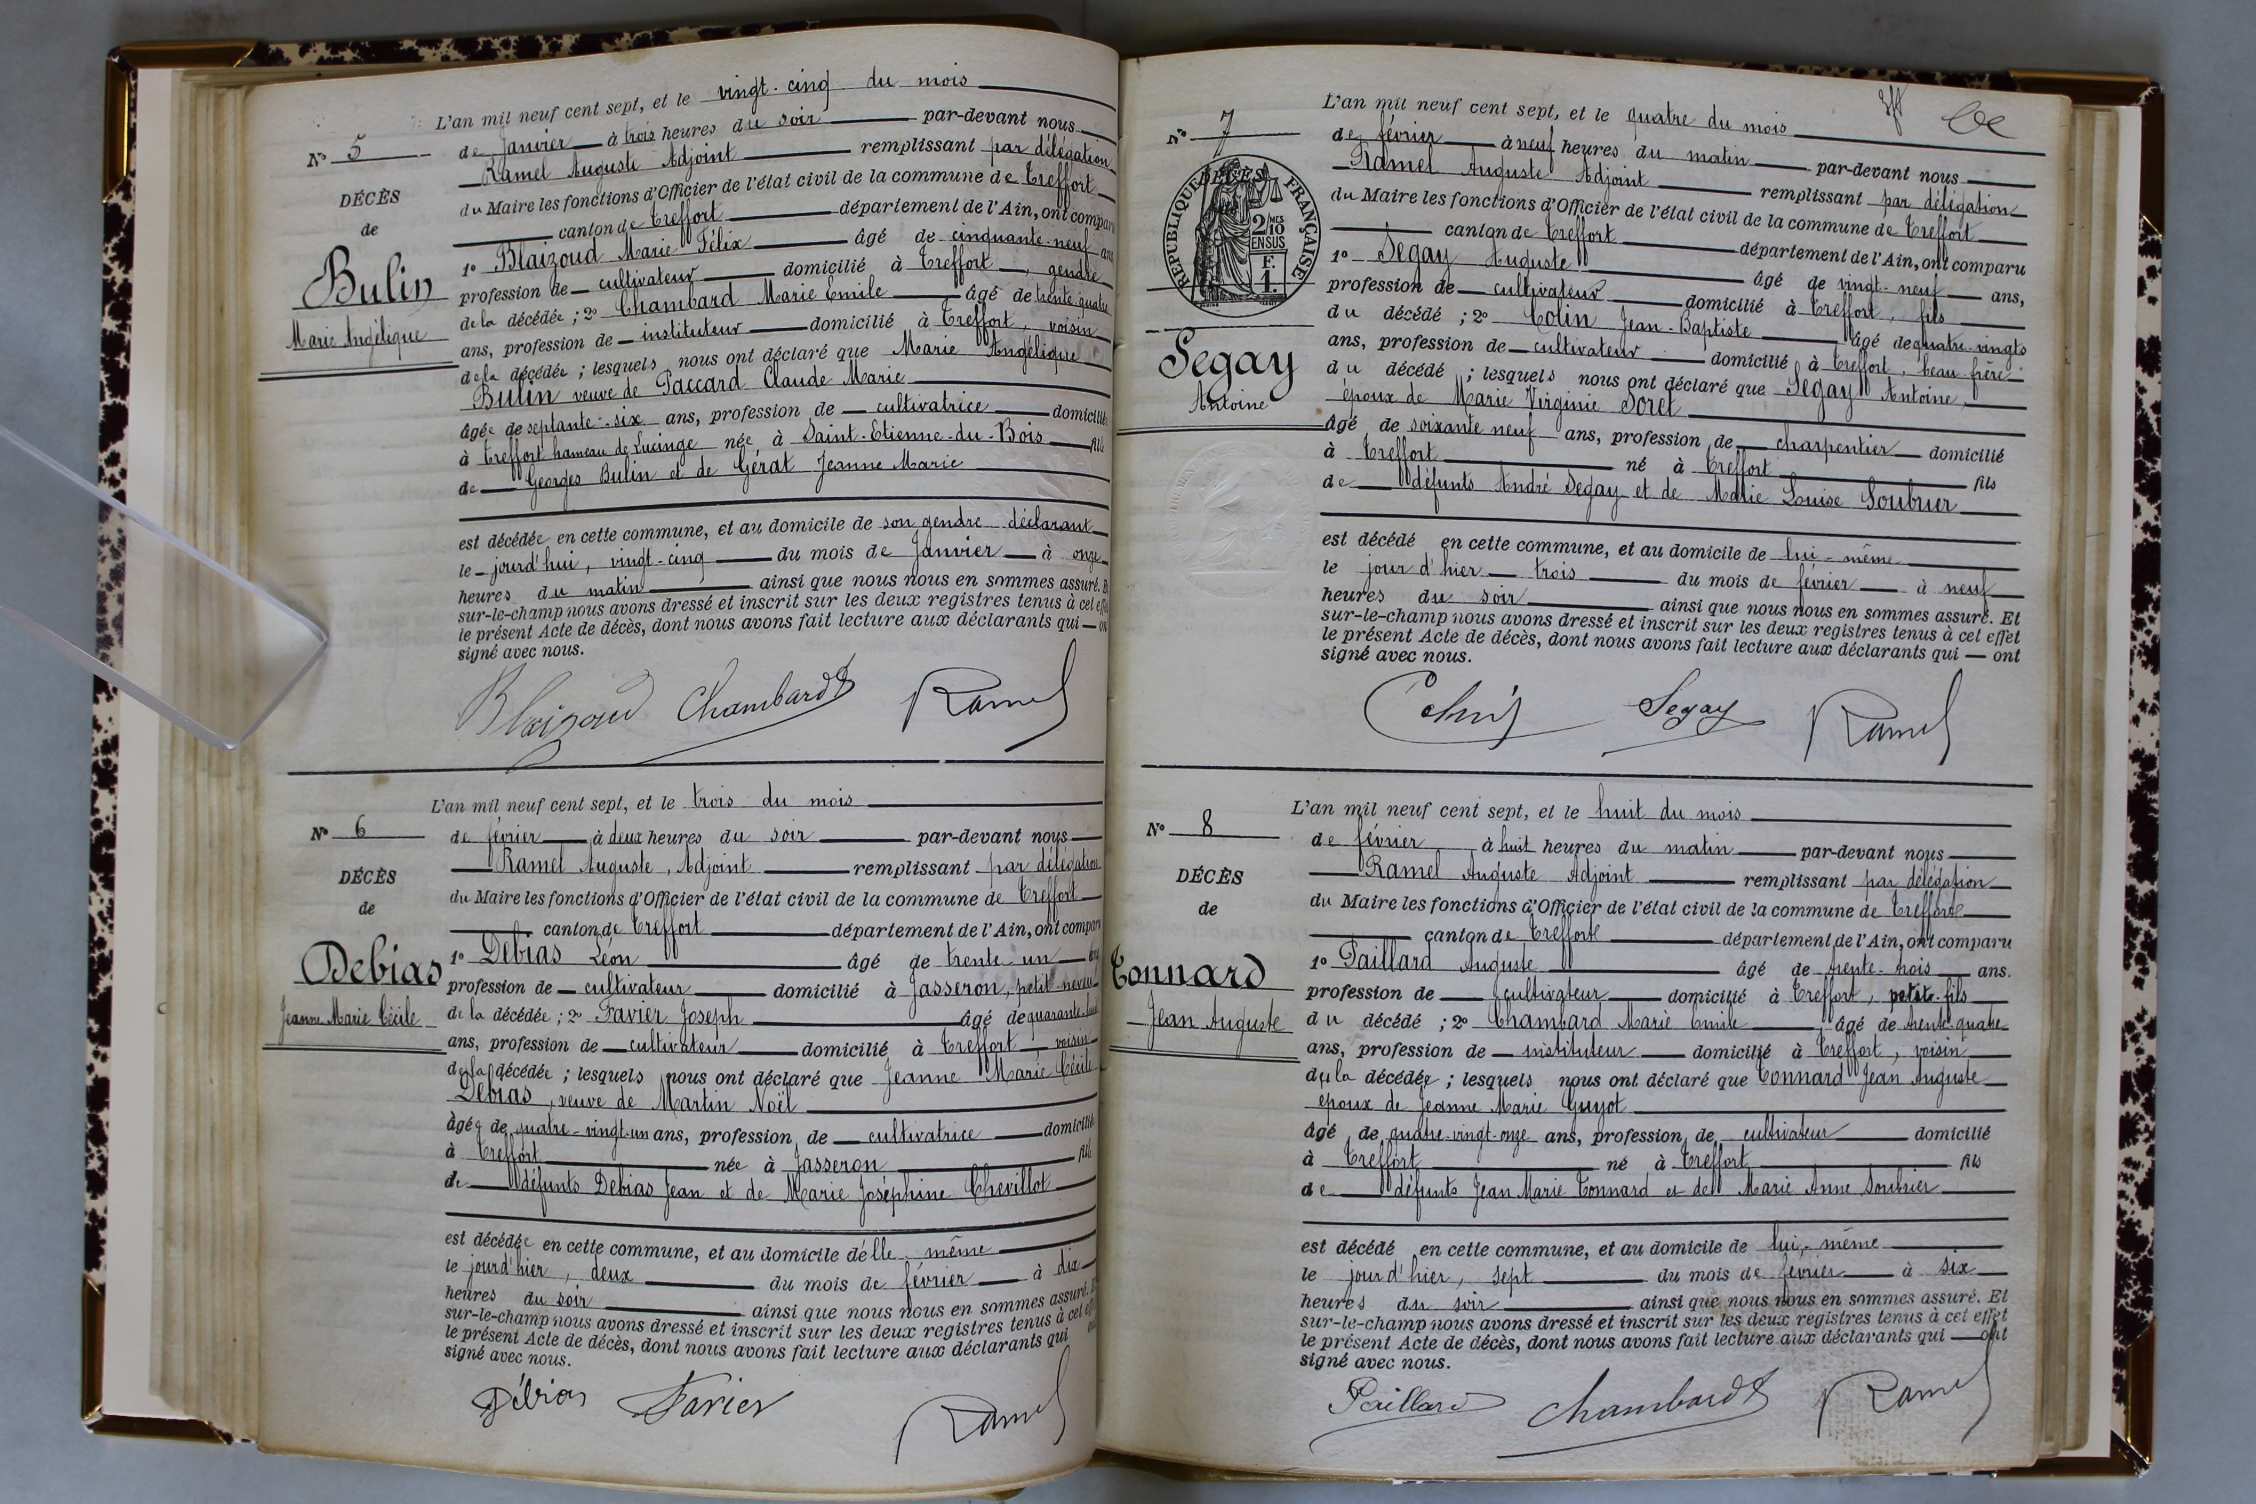 N° 5
DÉCÈS
de
Bulin
Marie Angélique
L'an mil neuf cent sept, et le vingt-cinq du mois
de Janvier à trois heures du soir par-devant nous
Ramel Auguste Adjoint remplissant par délégation
du Maire les fonctions d'Officier de l'état civil de la commune de Treffort
canton de Treffort département de l'Ain, ont comparu
1° Blaizoud Marie Félix âgé de cinquante-neuf ans
profession de cultivateur domicilié à Treffort, gendre
de la décédée ; 2° Chambard Marie Emile âgé de trente-quatre
ans, profession de instituteur domicilié à Treffort, voisin
de la décédée ; lesquels nous ont déclaré que Marie Angélique
Bulin veuve de Paccard Claude Marie
âgée de septante-six ans, profession de cultivatrice domiciliée
à Treffort hameau de Lucinge née à Saint-Etienne-du-Bois fille
de Georges Bulin et de Gérat Jeanne Marie
est décédée en cette commune, et au domicile de son gendre déclarant
le jourd'hui, vingt-cinq du mois de Janvier à onze
heures du matin ainsi que nous nous en sommes assuré. Et
sur-le-champ nous avons dressé et inscrit sur les deux registres tenus à cet effet
le présent Acte de décès, dont nous avons fait lecture aux déclarants qui — on
signé avec nous.
Blaizoud Chambard Ramel
N° 6
DÉCÈS
de
Debias
Jeanne Marie Cécile
L'an mil neuf cent sept, et le trois du mois
de février à deux heures du soir par-devant nous
Ramel Auguste, Adjoint remplissant par délégation
du Maire les fonctions d'Officier de l'état civil de la commune de Treffort
canton de Treffort département de l'Ain, ont comparu
1° Debias Léon âgé de trente-un ans
profession de cultivateur domicilié à Jasseron, petit-neveu
de la décédée ; 2° Favier Joseph âgé de quarante-
ans, profession de cultivateur domicilié à Treffort voisin
de la décédée ; lesquels nous ont déclaré que Jeanne Marie Cécile
Debias, veuve de Martin Noël
âgée de quatre-vingt-un ans, profession de cultivatrice domiciliée
à Treffort née à Jasseron fille
de défunts Debias Jean et de Marie Joséphine Chevillot
est décédée en cette commune, et au domicile d'elle-même
le jourd'hier, deux du mois de février à dix
heures du soir ainsi que nous nous en sommes assuré. Et
sur-le-champ nous avons dressé et inscrit sur les deux registres tenus à cet effet
le présent Acte de décès, dont nous avons fait lecture aux déclarants qui
signé avec nous.
Débias Favier Ramel
N° 7
RÉPUBLIQUE FRANÇAISE
DÉCÈS
2/10 MES
EN SUS
F.
1.
Segay
Antoine
L'an mil neuf cent sept, et le quatre du mois
de février à neuf heures du matin par-devant nous
Ramel Auguste Adjoint remplissant par délégation
du Maire les fonctions d'Officier de l'état civil de la commune de Treffort
canton de Treffort département de l'Ain, ont comparu
1° Segay Auguste âgé de vingt-neuf ans,
profession de cultivateur domicilié à Treffort, fils
du décédé ; 2° Colin Jean-Baptiste âgé de quatre-vingts
ans, profession de cultivateur domicilié à Treffort, beau-frère
du décédé ; lesquels nous ont déclaré que Segay Antoine,
époux de Marie Virginie Soret
âgé de soixante neuf ans, profession de charpentier domicilié
à Treffort né à Treffort fils
de défunts André Segay et de Marie Louise Soubrier
est décédé en cette commune, et au domicile de lui-même
le jour d'hier trois du mois de février à neuf
heures du soir ainsi que nous nous en sommes assuré. Et
sur-le-champ nous avons dressé et inscrit sur les deux registres tenus à cet effet
le présent Acte de décès, dont nous avons fait lecture aux déclarants qui — ont
signé avec nous.
Colin Segay Ramel
N° 8
DÉCÈS
de
Tonnard
Jean Auguste
L'an mil neuf cent sept, et le huit du mois
de février à huit heures du matin par-devant nous
Ramel Auguste Adjoint remplissant par délégation
du Maire les fonctions d'Officier de l'état civil de la commune de Treffort
canton de Treffort département de l'Ain, ont comparu
1° Paillard Auguste âgé de trente-trois ans.
profession de cultivateur domicilié à Treffort, petit-fils
du décédé ; 2° Chambard Marie Emile, âgé de trente-quatre
ans, profession de instituteur domicilié à Treffort, voisin
du la décédée ; lesquels nous ont déclaré que Tonnard Jean Auguste
époux de Jeanne Marie Guyot
âgé de quatre-vingt-onze ans, profession de cultivateur domicilié
à Treffort né à Treffort fils
de défunts Jean Marie Tonnard et de Marie Anne Soubrier
est décédé en cette commune, et au domicile de lui-même
le jour d'hier, sept du mois de février à six
heures du soir ainsi que nous nous en sommes assuré. Et
sur-le-champ nous avons dressé et inscrit sur les deux registres tenus à cet effet
le présent Acte de décès, dont nous avons fait lecture aux déclarants qui — ont
signé avec nous.
Paillard Chambard Ramel